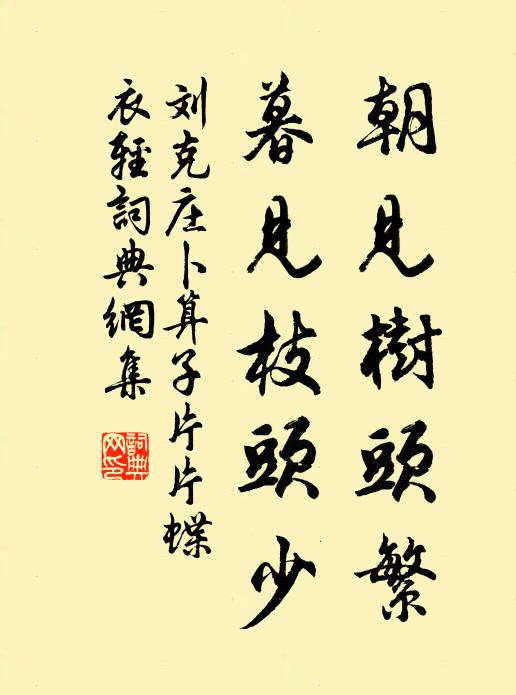 朝見樹頭繁
暮見枝頭少
刘克庄卜算子片片蝶
衣輕詞典網集
詞典网印